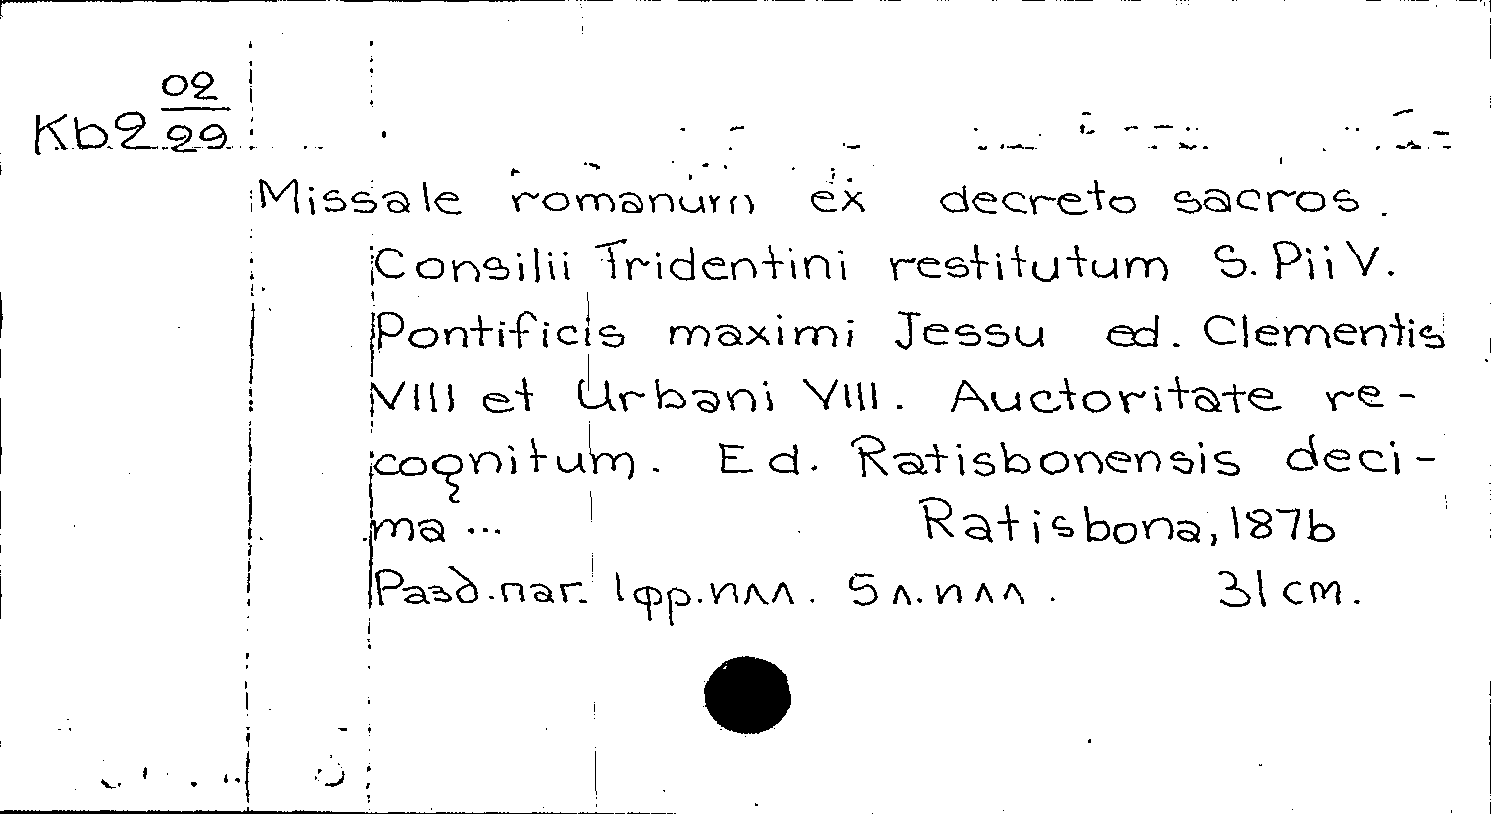 Kb2 02/29
Missale romanum ex decreto sacros.
Consilii Tridentini restitutum S. Pii V.
Pontificis maximi Jessu ed. Clementis
VIII et Urbani VIII. Auctoritate re-
cognitum. Ed. Ratisbonensis deci-
ma ... Ratisbona, 1876
Разд. паг. 1 фр. нлл. 5 л. нлл. 31 cm.